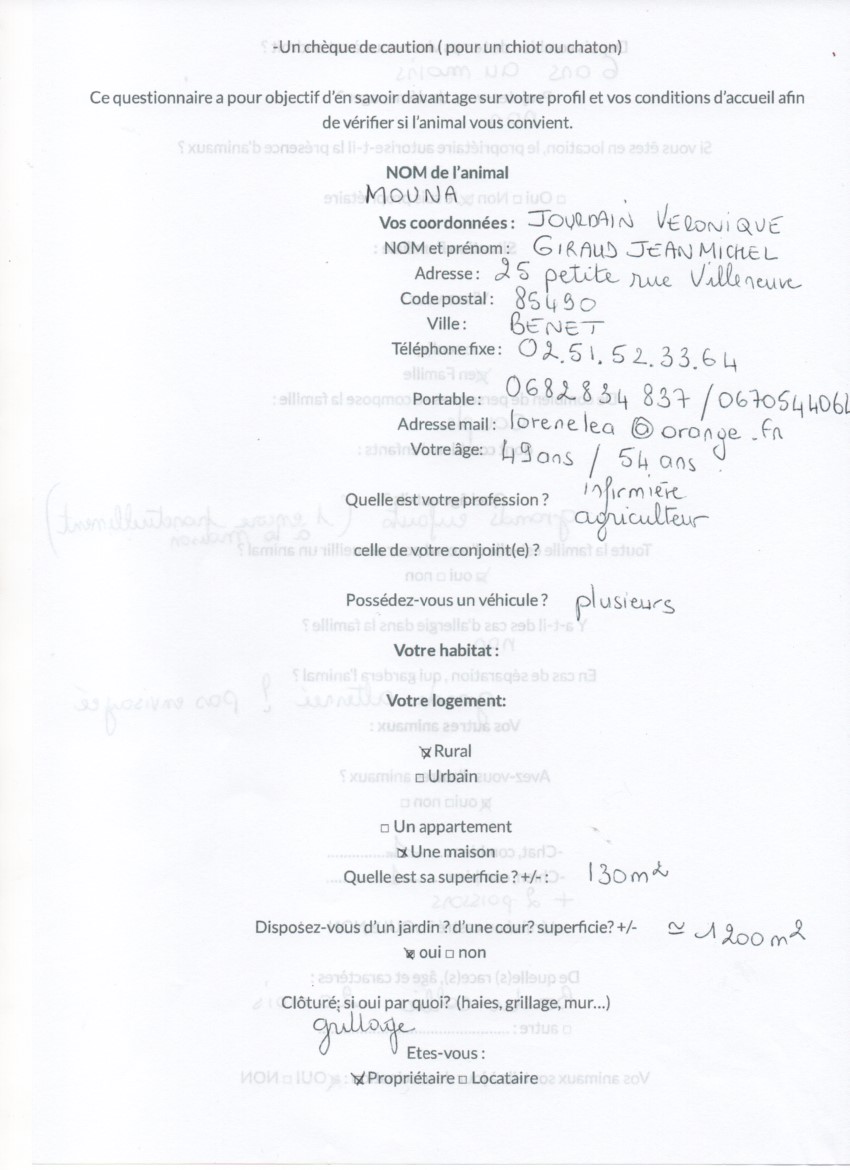 -Un chèque de caution ( pour un chiot ou chaton)
Ce questionnaire a pour objectif d'en savoir davantage sur votre profil et vos conditions d'accueil afin
de vérifier si l'animal vous convient.
NOM de l'animal
MOUNA
Vos coordonnées : JOURDAIN VERONIQUE
NOM et prénom : GIRAUD JEAN MICHEL
Adresse : 25 petite rue Villeneuve
Code postal : 85490
Ville : BENET
Téléphone fixe : 02.51.52.33.64
Portable : 0682834 837 / 067054406
Adresse mail : lorenelea @ orange.fr
Votre âge: 49 ans / 54 ans
Quelle est votre profession ? infirmière
agriculteur
celle de votre conjoint(e) ?
Possédez-vous un véhicule ? plusieurs
Votre habitat :
Votre logement:
☒ Rural
□ Urbain
□ Un appartement
☒ Une maison
Quelle est sa superficie ? +/- : 130 m²
Disposez-vous d'un jardin ? d'une cour? superficie? +/- ≃ 1200 m²
☒ oui □ non
Clôturé; si oui par quoi? (haies, grillage, mur...)
grillage
Etes-vous :
☒ Propriétaire □ Locataire